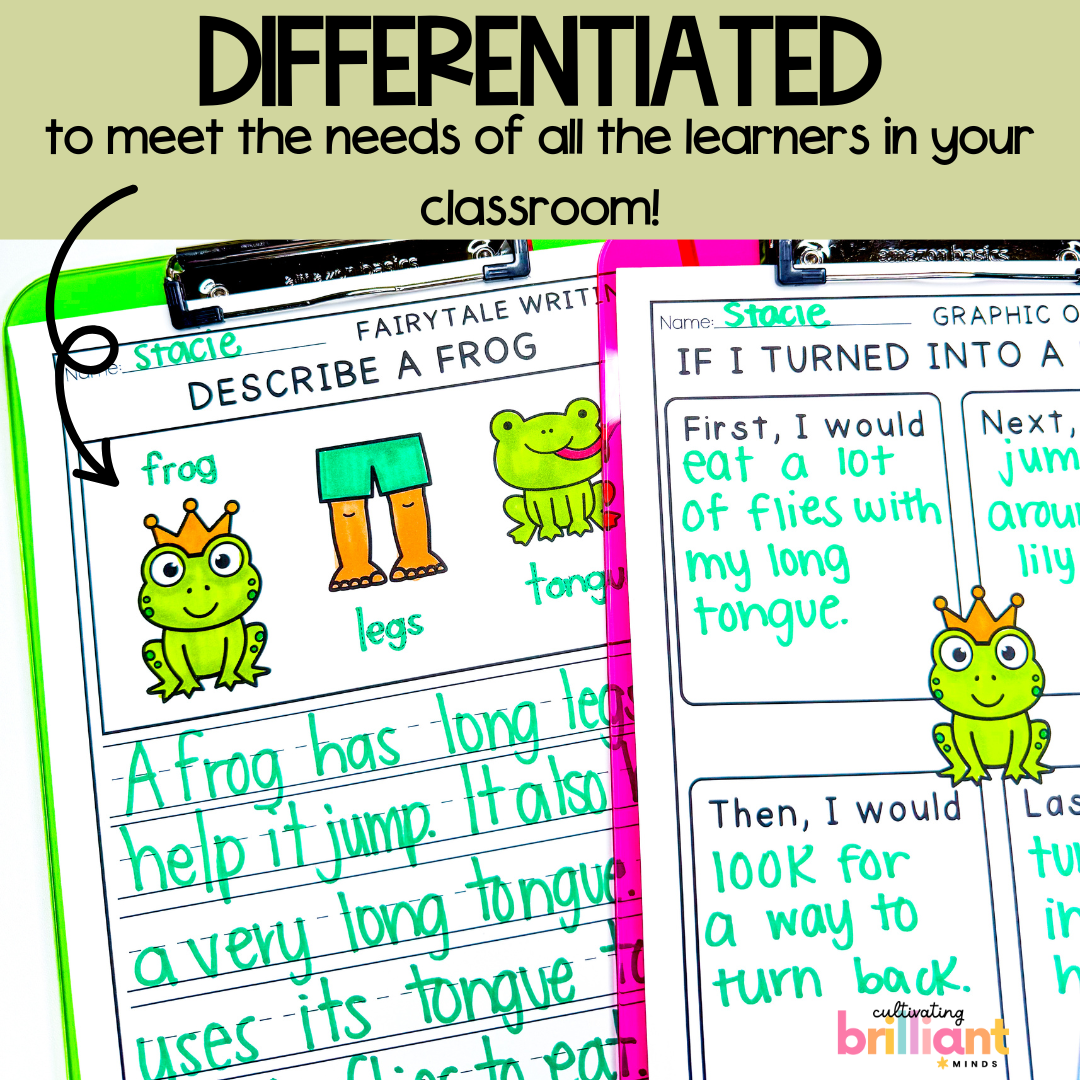 DIFFERENTIATED
to meet the needs of all the learners in your
classroom!
amazon basics
Name: Stacie
FAIRYTALE WRITIN
DESCRIBE A FROG
frog
legs
tongu
A frog has long legs
help it jump. It also
a very long tongue.
uses its tongue to
flies to eat.
amazon basics
Name: Stacie
GRAPHIC O
IF I TURNED INTO A
First, I would
eat a lot
of flies with
my long
tongue.
Next,
jum
arou
lily
Then, I would
look for
a way to
turn back.
Las
tu
in
h
cultivating
brilliant
MINDS